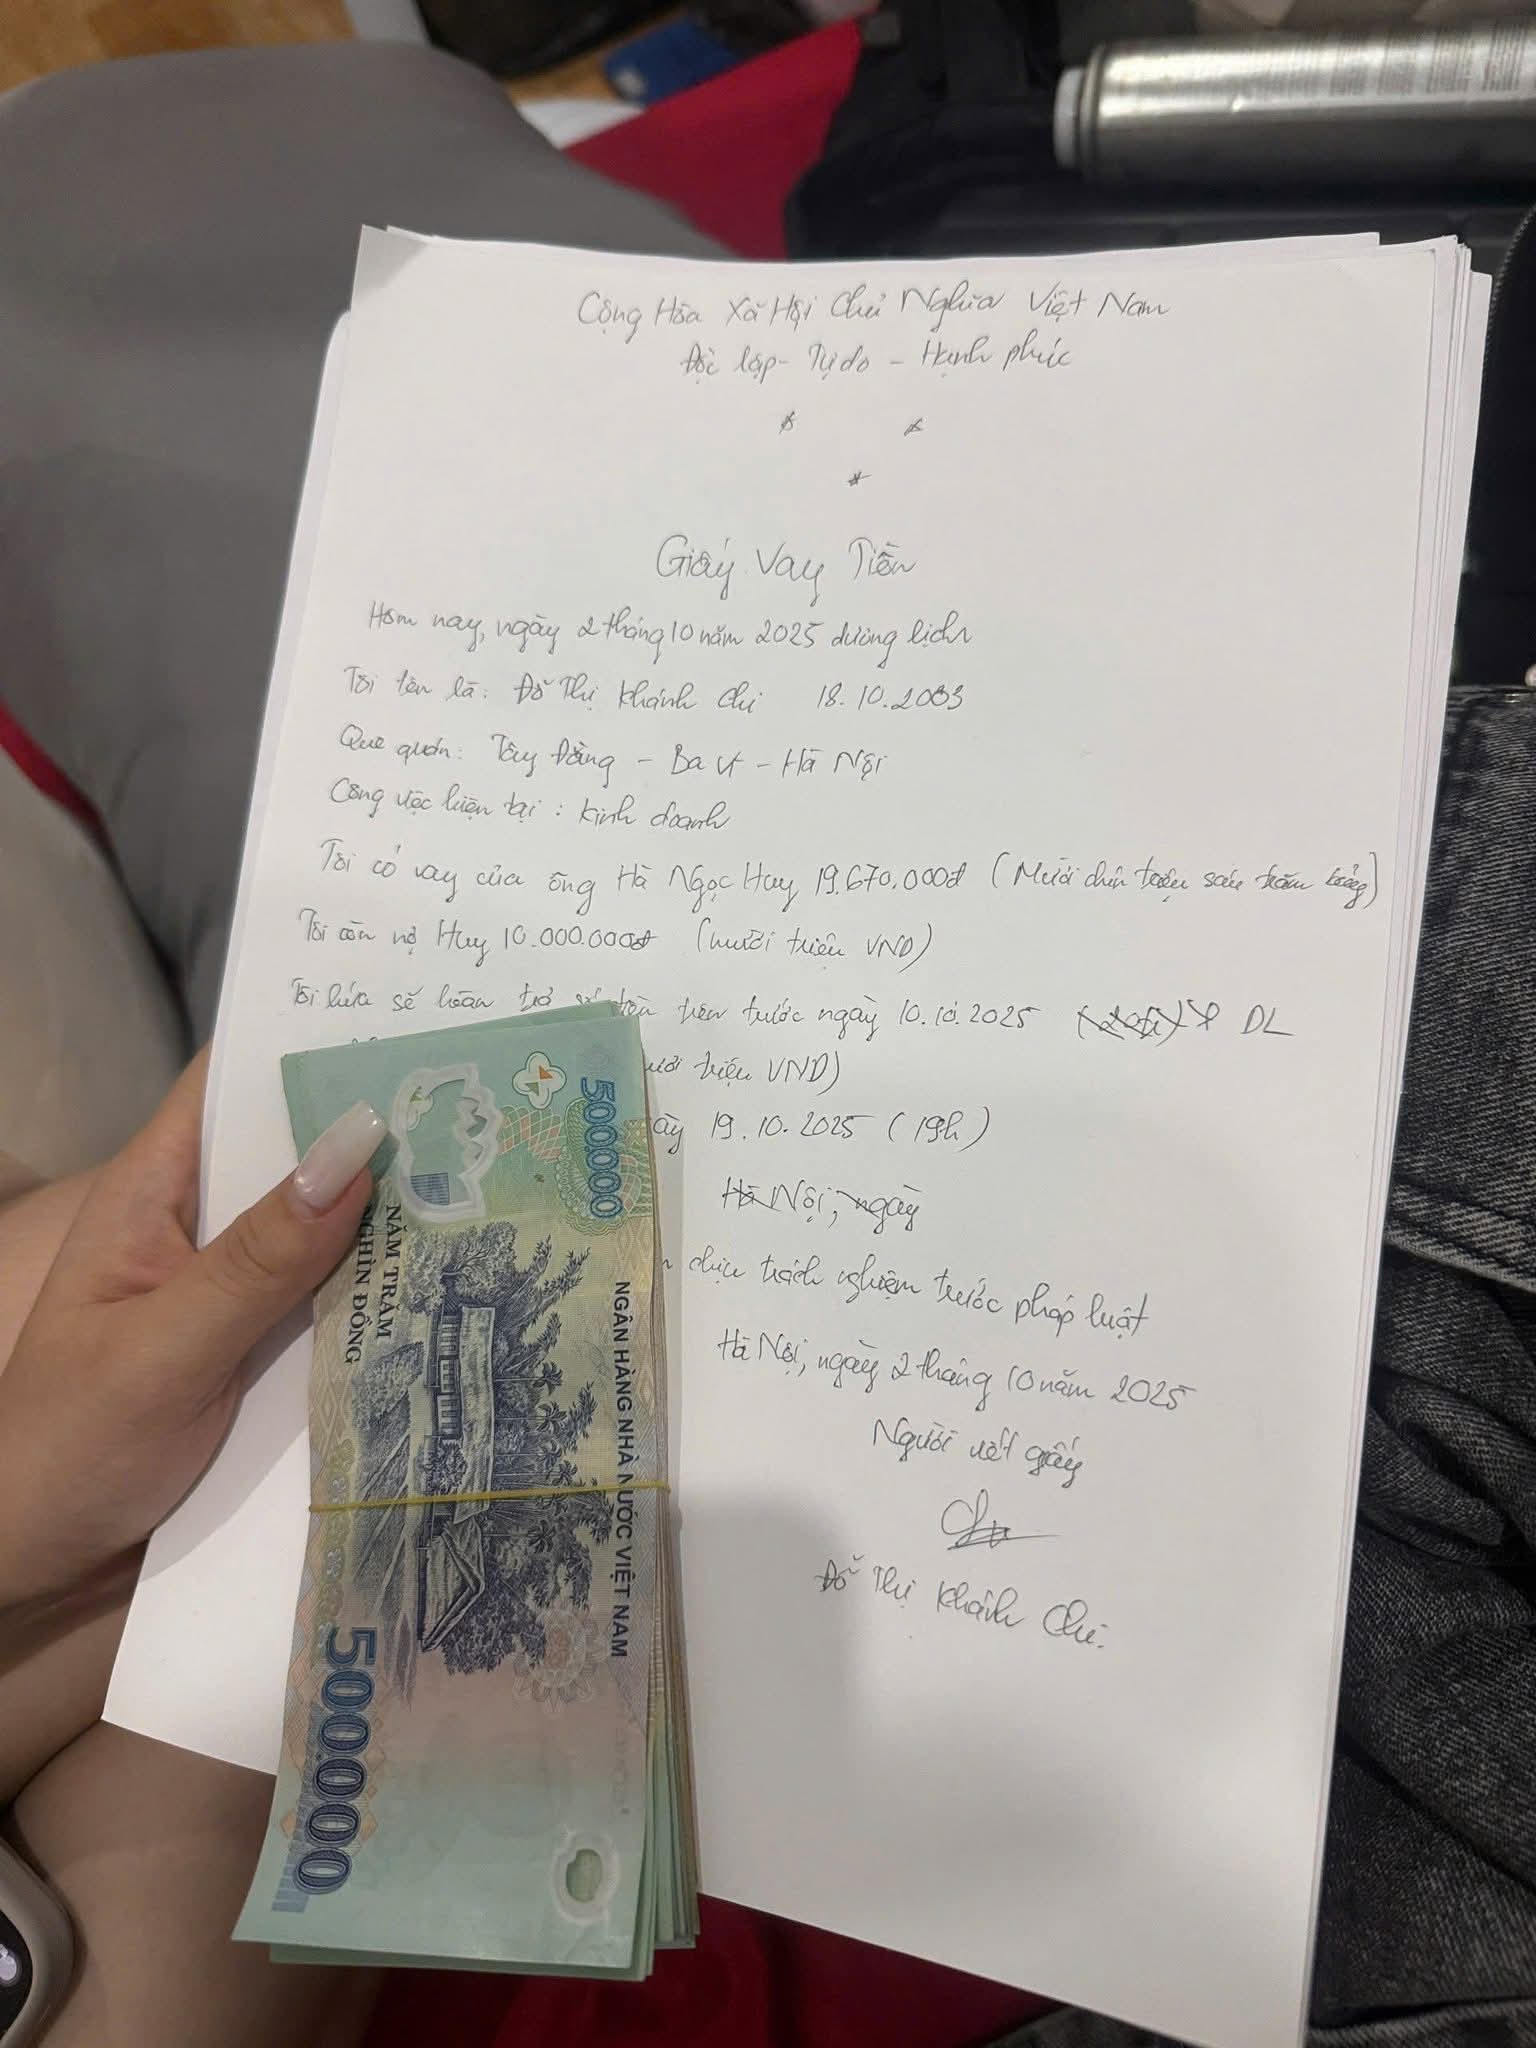 Cộng Hòa Xã Hội Chủ Nghĩa Việt Nam
Độc lập - Tự do - Hạnh phúc
Giấy Vay Tiền
Hôm nay, ngày 2 tháng 10 năm 2025 dương lịch
Tôi tên là: Đỗ Thị Khánh Chi 18.10.2003
Quê quán: Tây Đằng - Ba Vì - Hà Nội
Công việc hiện tại: Kinh doanh
Tôi có vay của ông Hà Ngọc Huy 19.670.000đ (Mười chín triệu sáu trăm bảy)
Tôi còn nợ Huy 10.000.000đ (mười triệu VND)
Tôi hứa sẽ hoàn trả số tiền trên trước ngày 10.10.2025 DL
ười triệu VND)
ày 19.10.2025 (19h)
Hà Nội, ngày
chịu trách nghiệm trước pháp luật
Hà Nội, ngày 2 tháng 10 năm 2025
Người viết giấy
Đỗ Thị Khánh Chi.
500.000
NĂM TRĂM
NGHÌN ĐỒNG
NGÂN HÀNG NHÀ NƯỚC VIỆT NAM
500.000